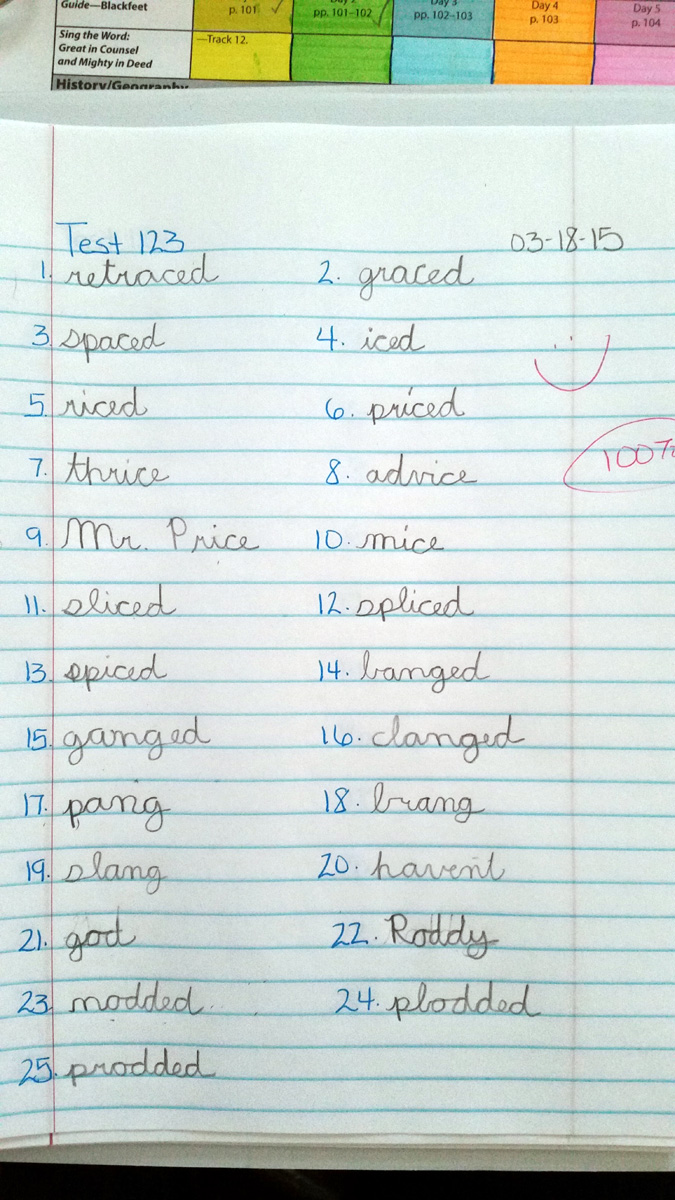 Guide—Blackfeet p. 101 pp. 101–102 Day 3 pp. 102–103 Day 4 p. 103 Day 5 p. 104
Sing the Word: —Track 12.
Great in Counsel
and Mighty in Deed
History/Geography
Test 123 03-18-15
1. retraced 2. graced
3. spaced 4. iced
5. riced 6. priced
7. thrice 8. advice
100%
9. Mr. Price 10. mice
11. sliced 12. spliced
13. spiced 14. banged
15. ganged 16. clanged
17. pang 18. brang
19. slang 20. haven't
21. god 22. Roddy
23. modded 24. plodded
25. prodded